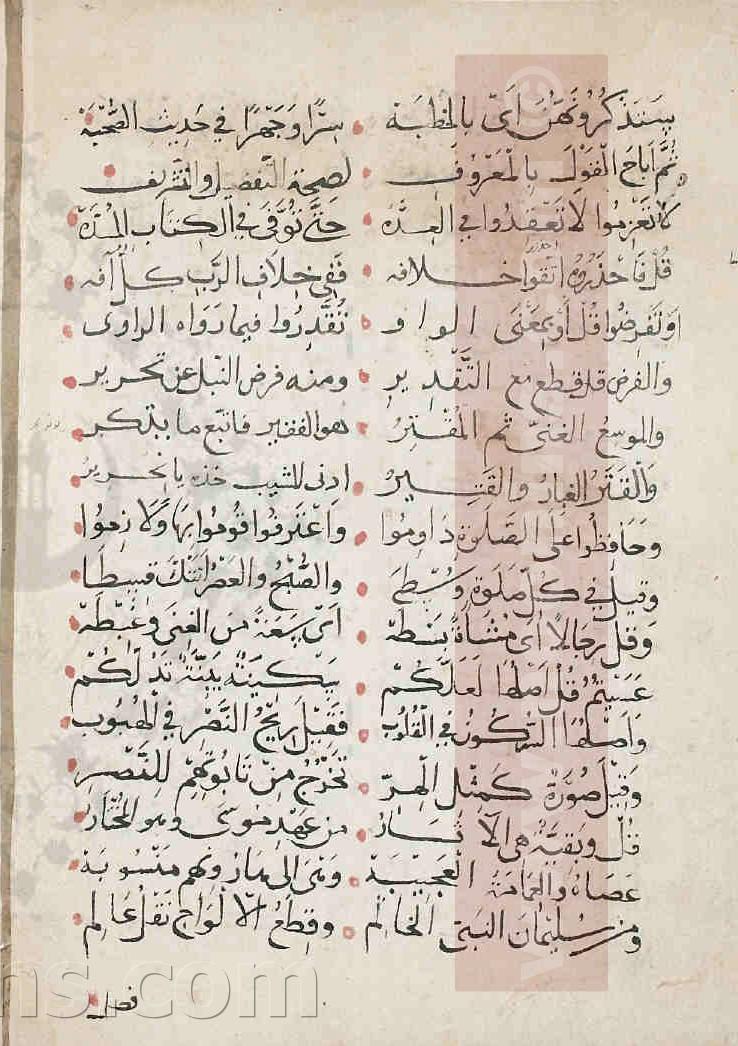 ستذكرونهن اي بالخطبة سرا وجهرا في حديث الصحبة
ثم اباح القول بالمعروف لصحة التفضيل والتشريف
لا تعزموا لا تعقدوا في العده حتى توفى في الكتاب المده
قل فاحذروه اتقوا خلافه ففي خلاف الرب كل آفه
او تفرضوا قل او بمعنى الواو تقدروا فيما رواه الراوى
والفرض قل قطع مع التقدير ومنه فرض النبل عن تحرير
والموسع الغني ثم المقتر هو الفقير فاتبع ما يذكر
والقتر الغبار والقتير ادنى للشيب خذ بالتحرير
وحافظوا على الصلوة داوموا واعترفوا قوموا بها ولازموا
وقيل في كل صلوة وسطى والصبح والعصر اتتك قسطا
وقل رجالا اي مشاة بسطه اي سعة من الغنى وغبطه
عسيتم قل اصلها لعلكم سكينة بينة تدلكم
واصلها السكون في القلوب فقيل ريح النصر في الهبوب
وقيل صورة كمثل الهر تخرج من تابوتهم للنصر
قل وبقية هي الآثار من عهد موسى وهو المختار
عصاه والعمامة العجيبة وهي الى هارونهم منسوبة
ومن سليمان النبي الخاتم وقطع الالواح نقل عالم